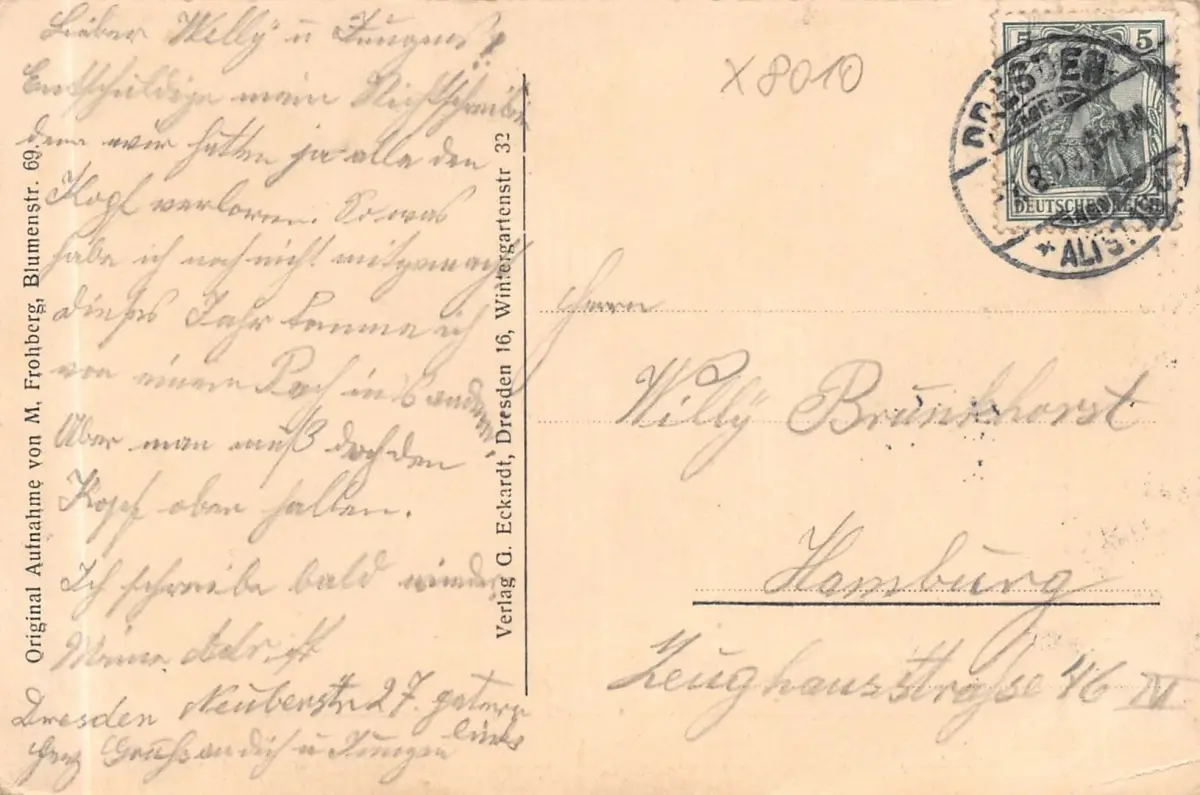 Lieber Willy u Jungens!
Entschuldige mein Nichtschreiben
denn wir hatten ja alle den
Kopf verloren. So was
habe ich noch nicht mitgemacht
dieses Jahr komme ich
von einem Pech in's andere.
Aber man muß doch den
Kopf oben halten.
Ich schreibe bald wieder
Meine Adr. ist
Dresden Neuberstr 27.
links
Herz Gruß an dich u Jungen
Original Aufnahme von M. Frohberg, Blumenstr. 69.
Verlag G. Eckardt, Dresden 16, Wintergartenstr 32
X 8010
5 5
DEUTSCHES REICH
DRESDEN-
* ALTST.
Herrn
Willy Brunkhorst
Hamburg
Zeughausstraße 46 IV